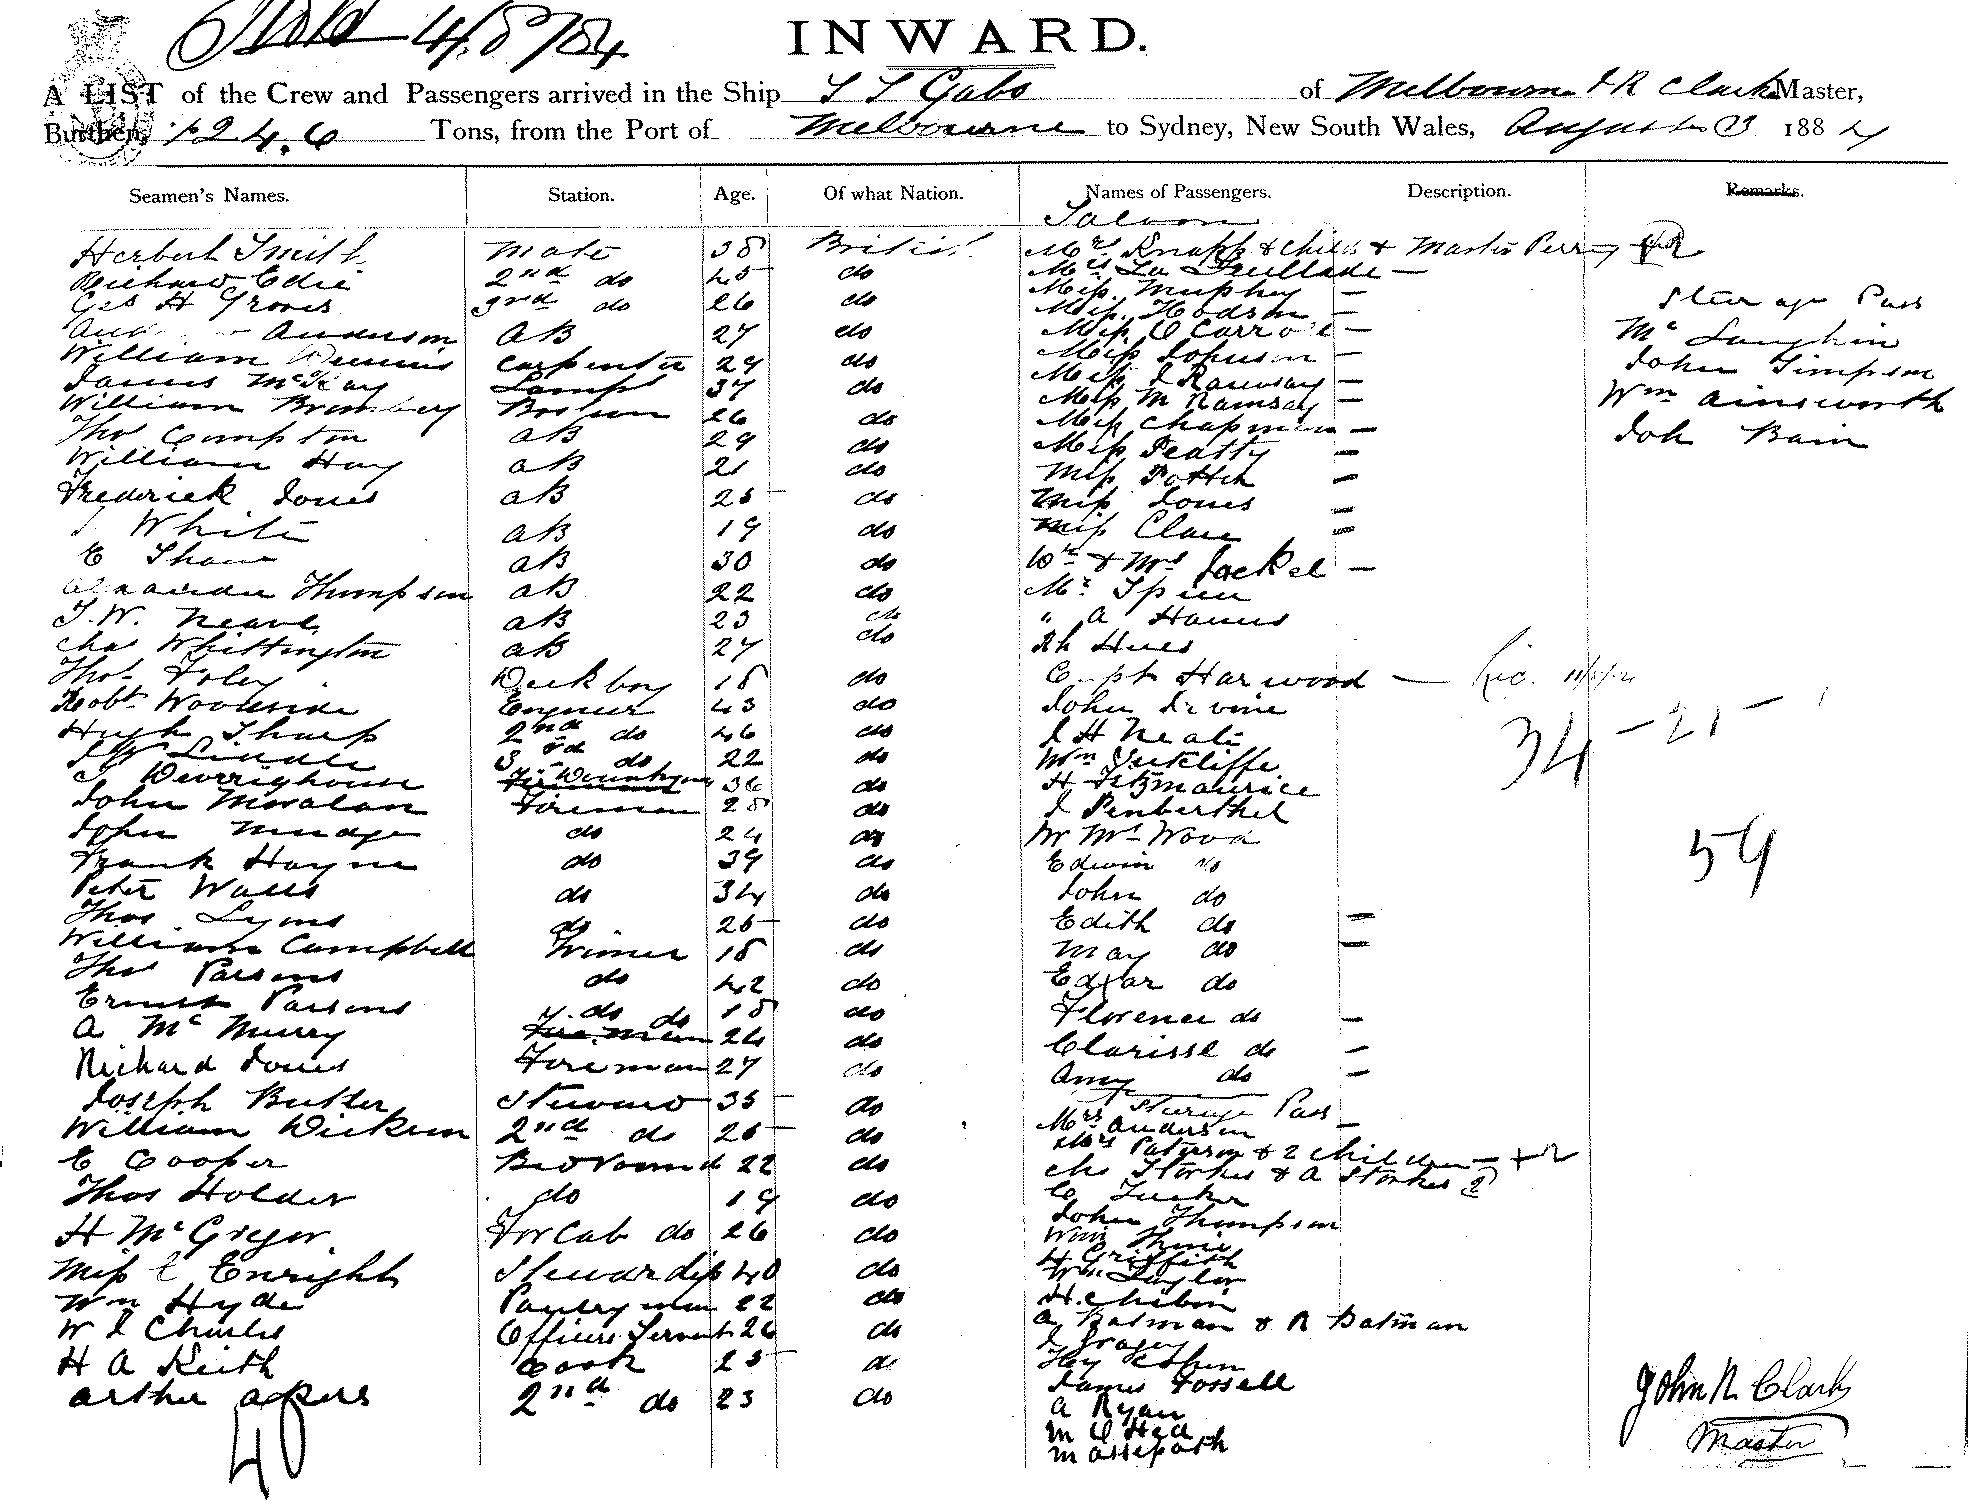 4/8/84
INWARD.
A LIST of the Crew and Passengers arrived in the Ship S S Gabo of Melbourne J R Clark Master,
Burthen, 1246 Tons, from the Port of Melbourne to Sydney, New South Wales, August 3 1884
Seamen's Names. Station. Age. Of what Nation. Names of Passengers. Description. Remarks.
Saloon
Herbert Smith Mate 38 British Mrs Knapp & Child & Master Perry
Richard Edie 2nd do 45 do Mrs La Feuillade —
Geo H Groves 3rd do 26 do Miss Murphy —
Anderson AB 27 do Miss Hodson —
William Dennis Carpenter 29 do Miss O Carroll —
James McKay Lamps 37 do Miss Johnson —
William Bromberg Bosun 26 do Miss J Ramsay —
Thos Compton AB 29 do Miss M Ramsay —
William Hay AB 21 do Miss Chapman —
Frederick Jones AB 25 do Miss Peatty —
White AB 19 do Miss Potter —
E Shaw AB 30 do Miss Jones —
Thompson AB 22 do Miss Clare —
T. W. Neave AB 23 do Mr & Mrs Jackel —
Chas Whittington AB 27 do Mr Spier
Thos Foley Deck boy 18 do " A Harris
Robt Woodside Engineer 43 do Hues
Hugh Sharp 2nd do 46 do Capt Harwood —
J W Liddle 3rd do 22 do John Irvine
T Deverighouse 36 do J H Neale
John Moralan Fireman 28 do Wm Sutcliffe
John Mudge do 24 do H Fitzmaurice
Frank Hayne do 39 do J Penberthel
Peter Walls do 34 do Mr Mrs Wood
Thos Lyons do 25 do Edwin do
William Campbell Trimer 18 do John do
Thos Parsons do 42 do Edith do —
Ernest Parsons do 18 do May do —
A McMurry Fireman 24 do Edgar do
Richard Jones Fireman 27 do Florence do —
Joseph Butler Steward 35 do Clarisse do —
William Dickson 2nd do 25 do Amy do —
Steerage Pass
E Cooper Bedroom d 22 do Mrs Anderson —
Thos Holder do 19 do Mrs Paterson & 2 Children — + 2
H McGregor For Cab do 26 do Chs Storkes & A Storkes 2
Miss E Enright Stewardess 40 do C Tucker
Wm Hyde Pantryman 22 do John Thompson
W J Charles Officers Servant 26 do Wm
H A Keith Cook 25 do H Griffith
Arthur Akers 2nd do 23 do Wm Taylor
H. Chibin
A Batman & R Batman
J Gragey
Hy Cohen
James Fossell
A Ryan
M O Hea
40
Steerage Pass
McLaughin
John Simpson
Wm Ainsworth
Joh Bain
34 – 21 –
59
John R Clark
Master